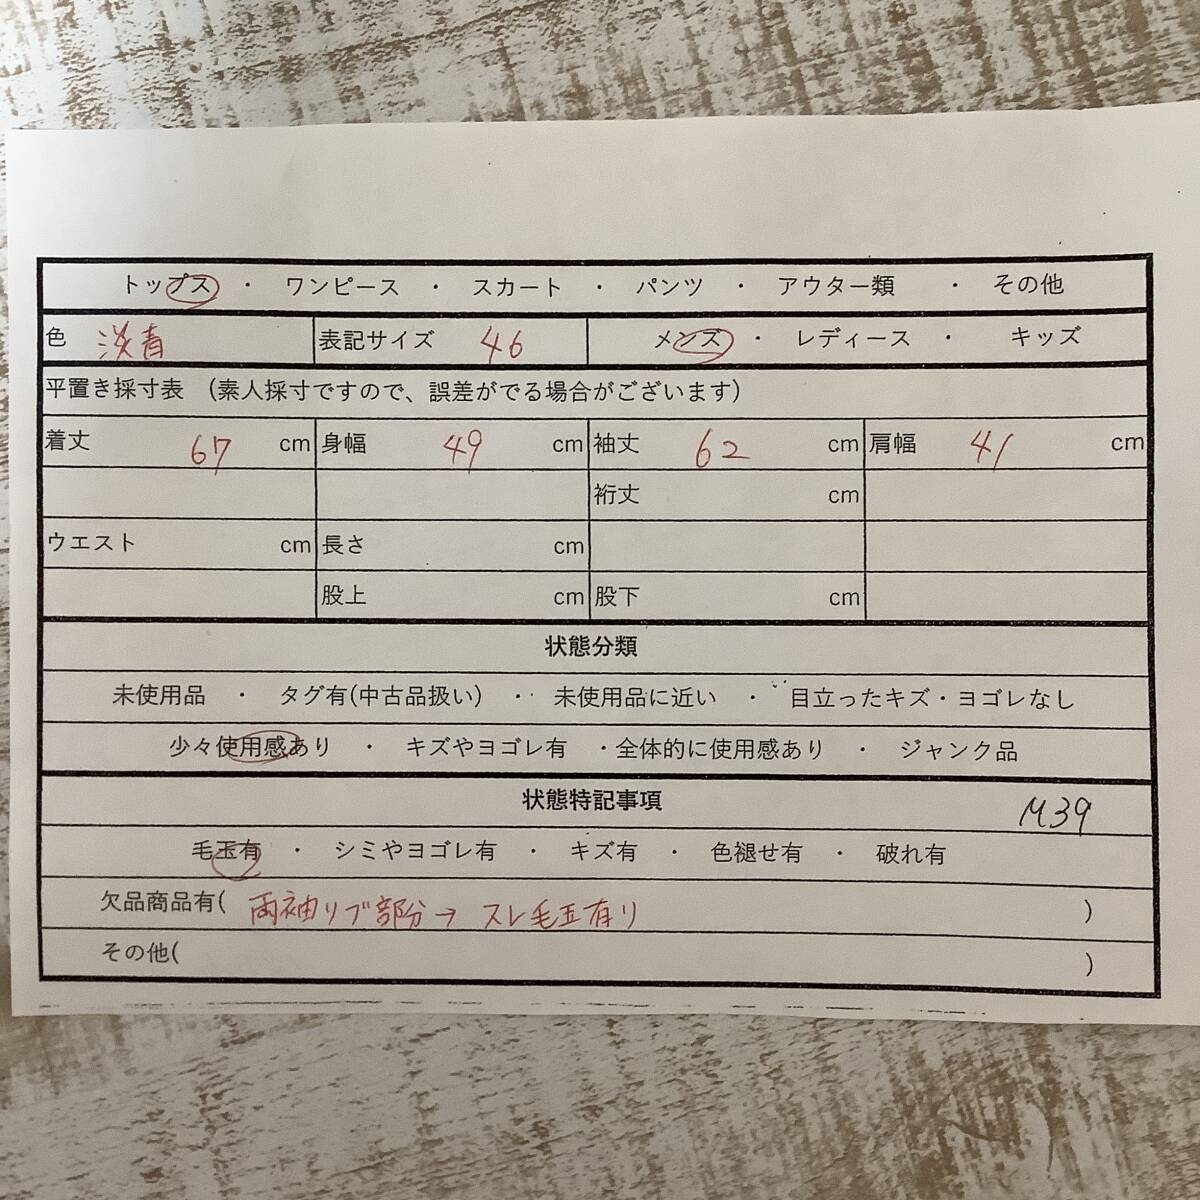 トップス ・ ワンピース ・ スカート ・ パンツ ・ アウター類 ・ その他
色 淡青 表記サイズ 46 メンズ ・ レディース ・ キッズ
平置き採寸表 (素人採寸ですので、誤差がでる場合がございます)
着丈 67 cm 身幅 49 cm 袖丈 62 cm 肩幅 41 cm
裄丈 cm
ウエスト cm 長さ cm
股上 cm 股下 cm
状態分類
未使用品 ・ タグ有(中古品扱い) ・ 未使用品に近い ・ 目立ったキズ・ヨゴレなし
少々使用感あり ・ キズやヨゴレ有 ・全体的に使用感あり ・ ジャンク品
状態特記事項 M39
毛玉有 ・ シミやヨゴレ有 ・ キズ有 ・ 色褪せ有 ・ 破れ有
欠品商品有( 両袖リブ部分→スレ毛玉有り )
その他( )